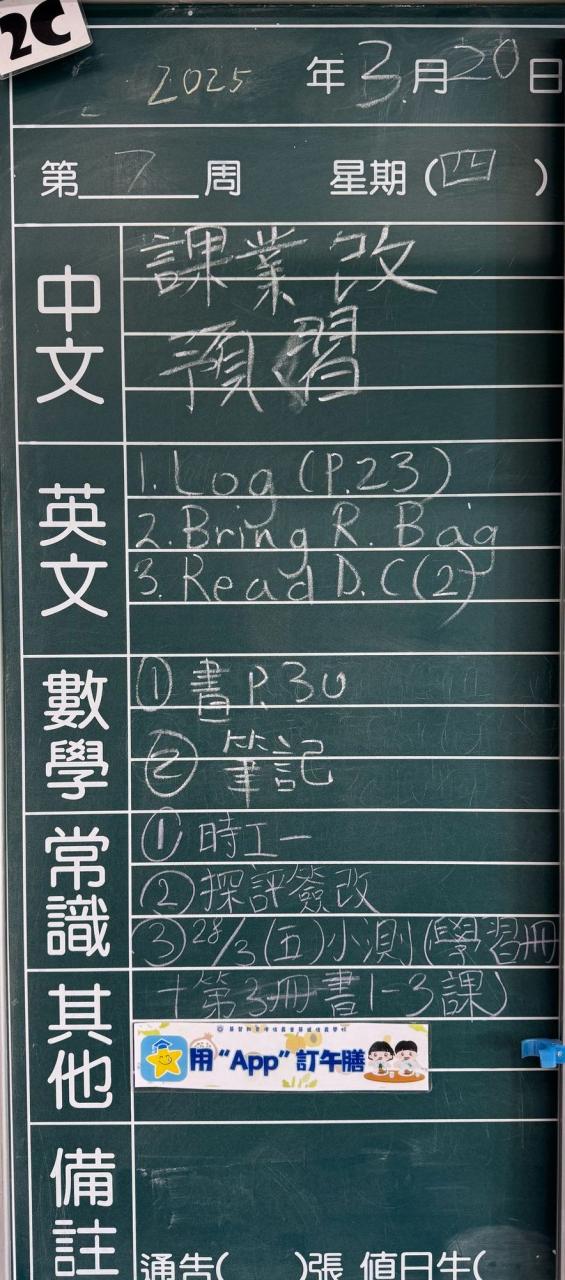 2C
2025 年 3 月 20 日
第 7 周 星期 (四)
中文
課業改
預習
英文
1. Log (P.23)
2. Bring R. Bag
3. Read D.C (2)
數學
① 書 P.30
② 筆記
常識
① 時工一
② 探評簽改
③ 28/3 (五) 小測 (學習冊
其他
+第3冊書1-3課)
用“App”訂午膳
備註
通告( )張 值日生(